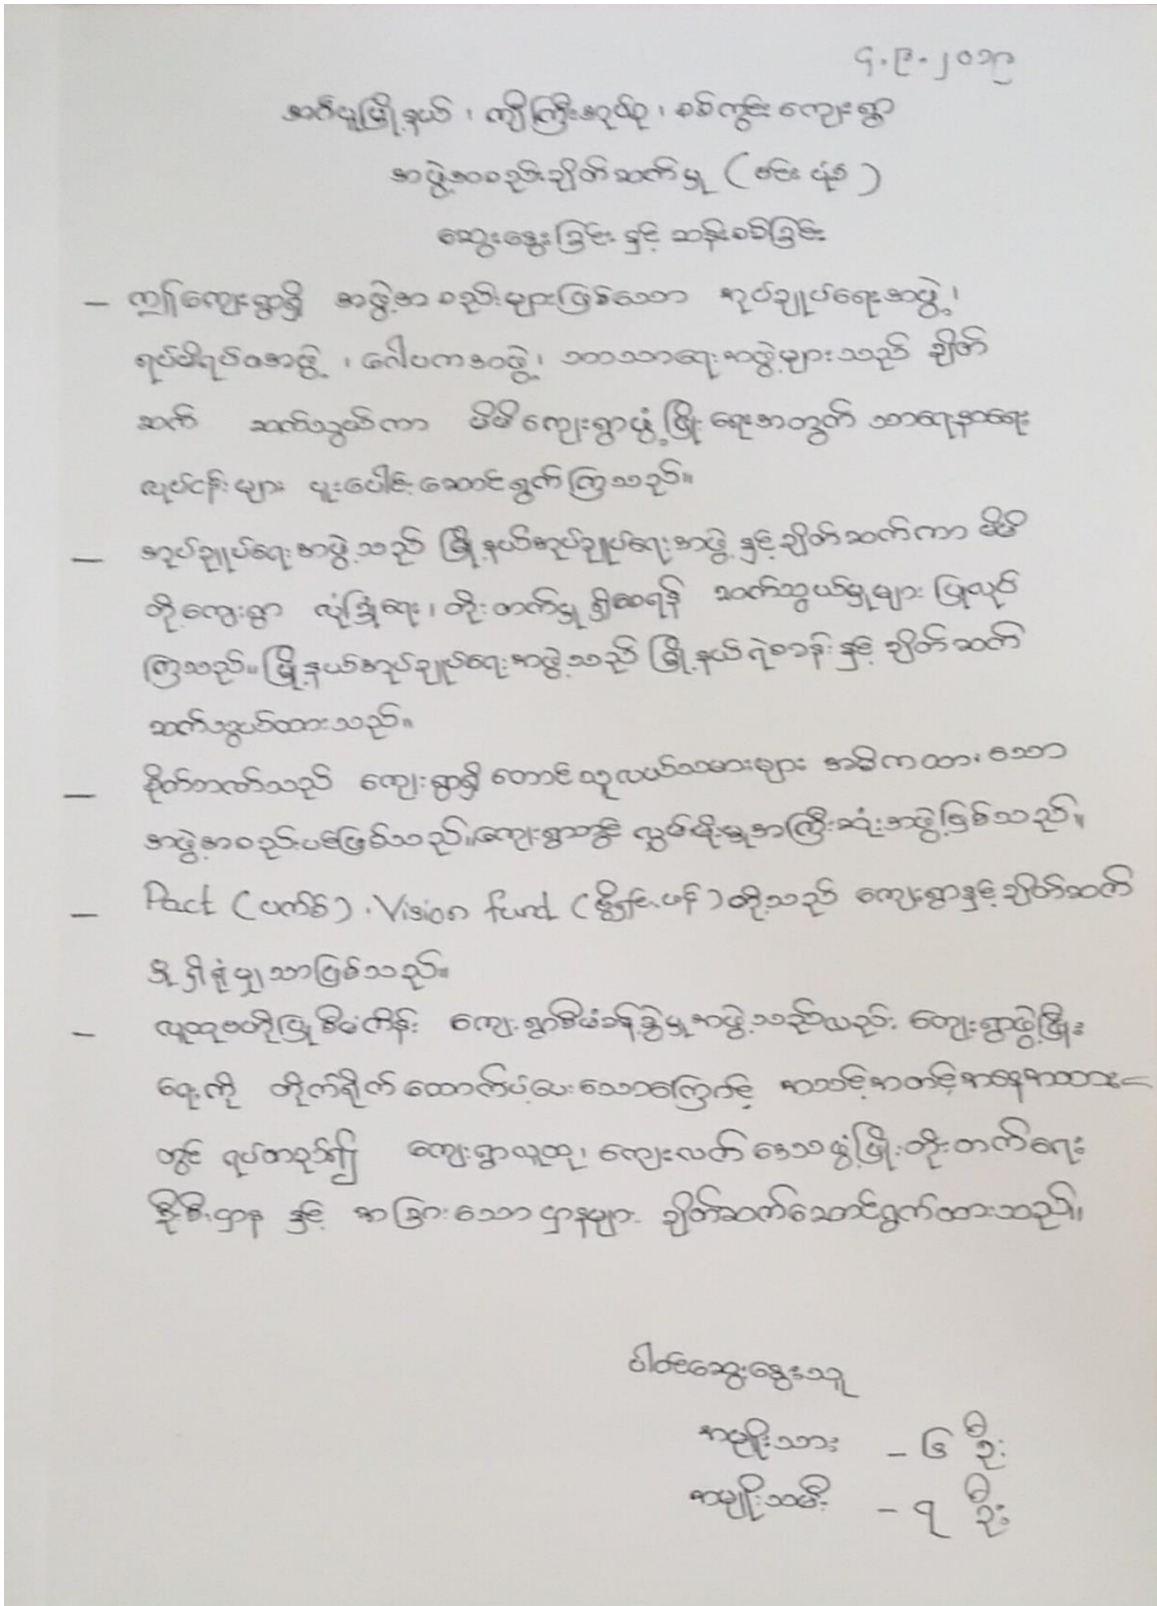 ၄.၉.၂၀၁၉
အင်္ဂပူမြို့နယ်၊ ကျီကြီးအုပ်စု၊ စစ်ကွင်းကျေးရွာ
အဖွဲ့အစည်းချိတ်ဆက်မှု (ဗင်းပုံစံ)
ဆွေးနွေးခြင်း နှင့် ဆန်းစစ်ခြင်း
– ဤကျေးရွာရှိ အဖွဲ့အစည်းများဖြစ်သော အုပ်ချုပ်ရေးအဖွဲ့၊
ရပ်မိရပ်ဖအဖွဲ့၊ ဂေါပကအဖွဲ့၊ ဘာသာရေးအဖွဲ့များသည် ချိတ်
ဆက် ဆက်သွယ်ကာ မိမိကျေးရွာဖွံ့ဖြိုးရေးအတွက် သာရေးနာရေး
လုပ်ငန်းများ ပူးပေါင်းဆောင်ရွက်ကြသည်။
– အုပ်ချုပ်ရေးအဖွဲ့သည် မြို့နယ်အုပ်ချုပ်ရေးအဖွဲ့ နှင့်ချိတ်ဆက်ကာ မိမိ
တို့ကျေးရွာ လုံခြုံရေး၊ တိုးတက်မှု ရှိစေရန် ဆက်သွယ်မှုများ ပြုလုပ်
ကြသည်။ မြို့နယ်အုပ်ချုပ်ရေးအဖွဲ့သည် မြို့နယ်ရဲစခန်းနှင့် ချိတ်ဆက်
ဆက်သွယ်ထားသည်။
– စိုက်ဘဏ်သည် ကျေးရွာရှိ တောင်သူလယ်သမားများ အဓိကထားသော
အဖွဲ့အစည်းပင်ဖြစ်သည်။ ကျေးရွာတွင် လွှမ်းမိုးမှုအကြီးဆုံးအဖွဲ့ဖြစ်သည်။
– Pact (ပက်စ်)၊ Vision fund (ဗွီရှင်းဖန်) တို့သည် ကျေးရွာနှင့်ချိတ်ဆက်
မှု ရှိရုံမျှသာဖြစ်သည်။
– လူထုဗဟိုပြုစီမံကိန်း ကျေးရွာစီမံခန့်ခွဲမှုအဖွဲ့သည်လည်း ကျေးရွာဖွံ့ဖြိုး
ရေးကို တိုက်ရိုက်ထောက်ပံ့ပေးသောကြောင့် အသင့်အတင့်အနေအထား
တွင် ရပ်တည်၍ ကျေးရွာလူထု၊ ကျေးလက်ဒေသဖွံ့ဖြိုးတိုးတက်ရေး
ဦးစီးဌာန နှင့် အခြားသောဌာနများ ချိတ်ဆက်ဆောင်ရွက်ထားသည်။
ပါဝင်ဆွေးနွေးသူ
အမျိုးသား – ၆ ဦး
အမျိုးသမီး – ၇ ဦး